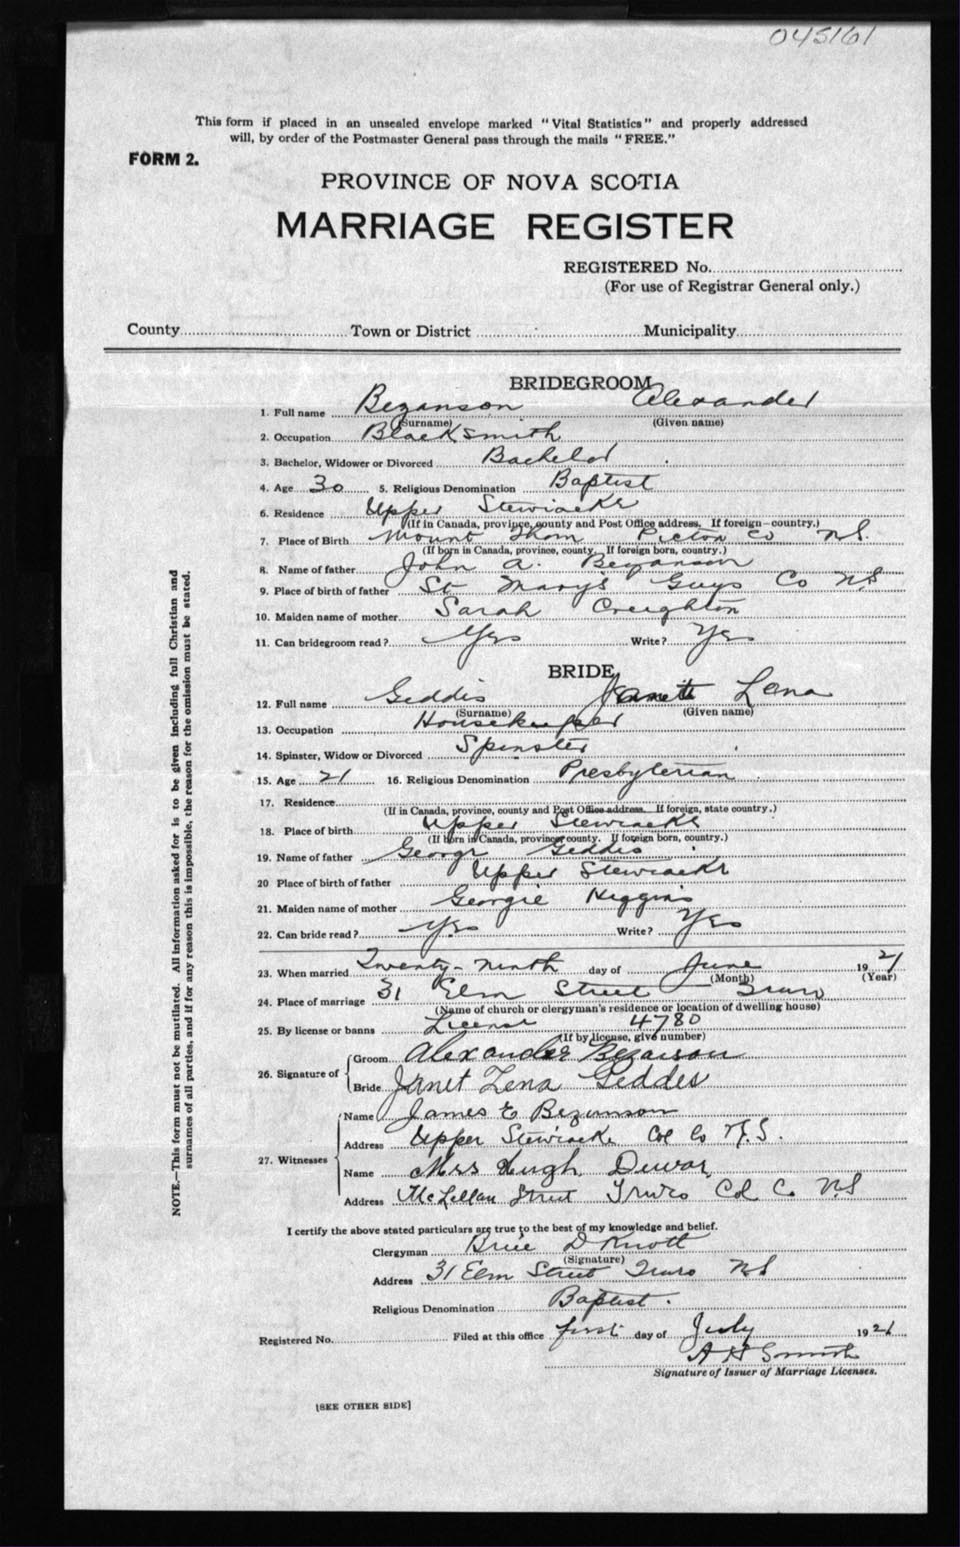 045161
This form if placed in an unsealed envelope marked "Vital Statistics" and properly addressed
will, by order of the Postmaster General pass through the mails "FREE."
FORM 2.
PROVINCE OF NOVA SCOTIA
MARRIAGE REGISTER
REGISTERED No.
(For use of Registrar General only.)
County Town or District Municipality
BRIDEGROOM
1. Full name Bezanson Alexander
(Surname) (Given name)
2. Occupation Blacksmith
3. Bachelor, Widower or Divorced Bachelor
4. Age 30 5. Religious Denomination Baptist
6. Residence Upper Stewiacke
(If in Canada, province, county and Post Office address. If foreign—country.)
7. Place of Birth Mount Thom Picton Co N.S.
(If born in Canada, province, county. If foreign born, country.)
8. Name of father John A. Bezanson
9. Place of birth of father St Marys Guys Co NS
10. Maiden name of mother Sarah Creighton
11. Can bridegroom read? Yes Write? Yes
BRIDE
12. Full name Geddis Lena
(Surname) (Given name)
13. Occupation Housekeeper
14. Spinster, Widow or Divorced Spinster
15. Age 21 16. Religious Denomination Presbyterian
17. Residence
(If in Canada, province, county and Post Office address. If foreign, state country.)
18. Place of birth Upper Stewiacke
(If born in Canada, province county. If foreign born, country.)
19. Name of father George Geddis
20 Place of birth of father Upper Stewiacke
21. Maiden name of mother Georgie Higgins
22. Can bride read? Yes Write? Yes
23. When married Twenty-Ninth day of June 1921
(Month) (Year)
24. Place of marriage 31 Elm Street Truro
(Name of church or clergyman's residence or location of dwelling house)
25. By license or banns License 4780
(If by license, give number)
26. Signature of
Groom Alexander Bezanson
Bride Janet Lena Geddes
27. Witnesses
Name James E Bezanson
Address Upper Stewiacke Col Co N.S.
Name Mrs Hugh Dewar
Address McLellan Street Truro Col. Co. N.S
I certify the above stated particulars are true to the best of my knowledge and belief.
Clergyman Brice D Knott
(Signature)
Address 31 Elm Street Truro NS
Religious Denomination Baptist.
Registered No. Filed at this office first day of July 1921
A H Smith
Signature of Issuer of Marriage Licenses.
[SEE OTHER SIDE]
NOTE.—This form must not be mutilated. All information asked for is to be given including full Christian and
surnames of all parties, and if for any reason this is impossible, the reason for the omission must be stated.